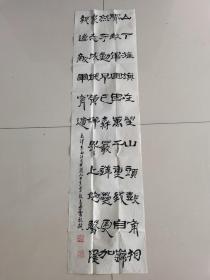 山下旌旗在望山頭鼓角相
聞敵軍圍困萬千重我自巋
然不動早已森嚴壁壘更加
衆志成城黄洋界上炮聲隆
報道敵軍宵遁